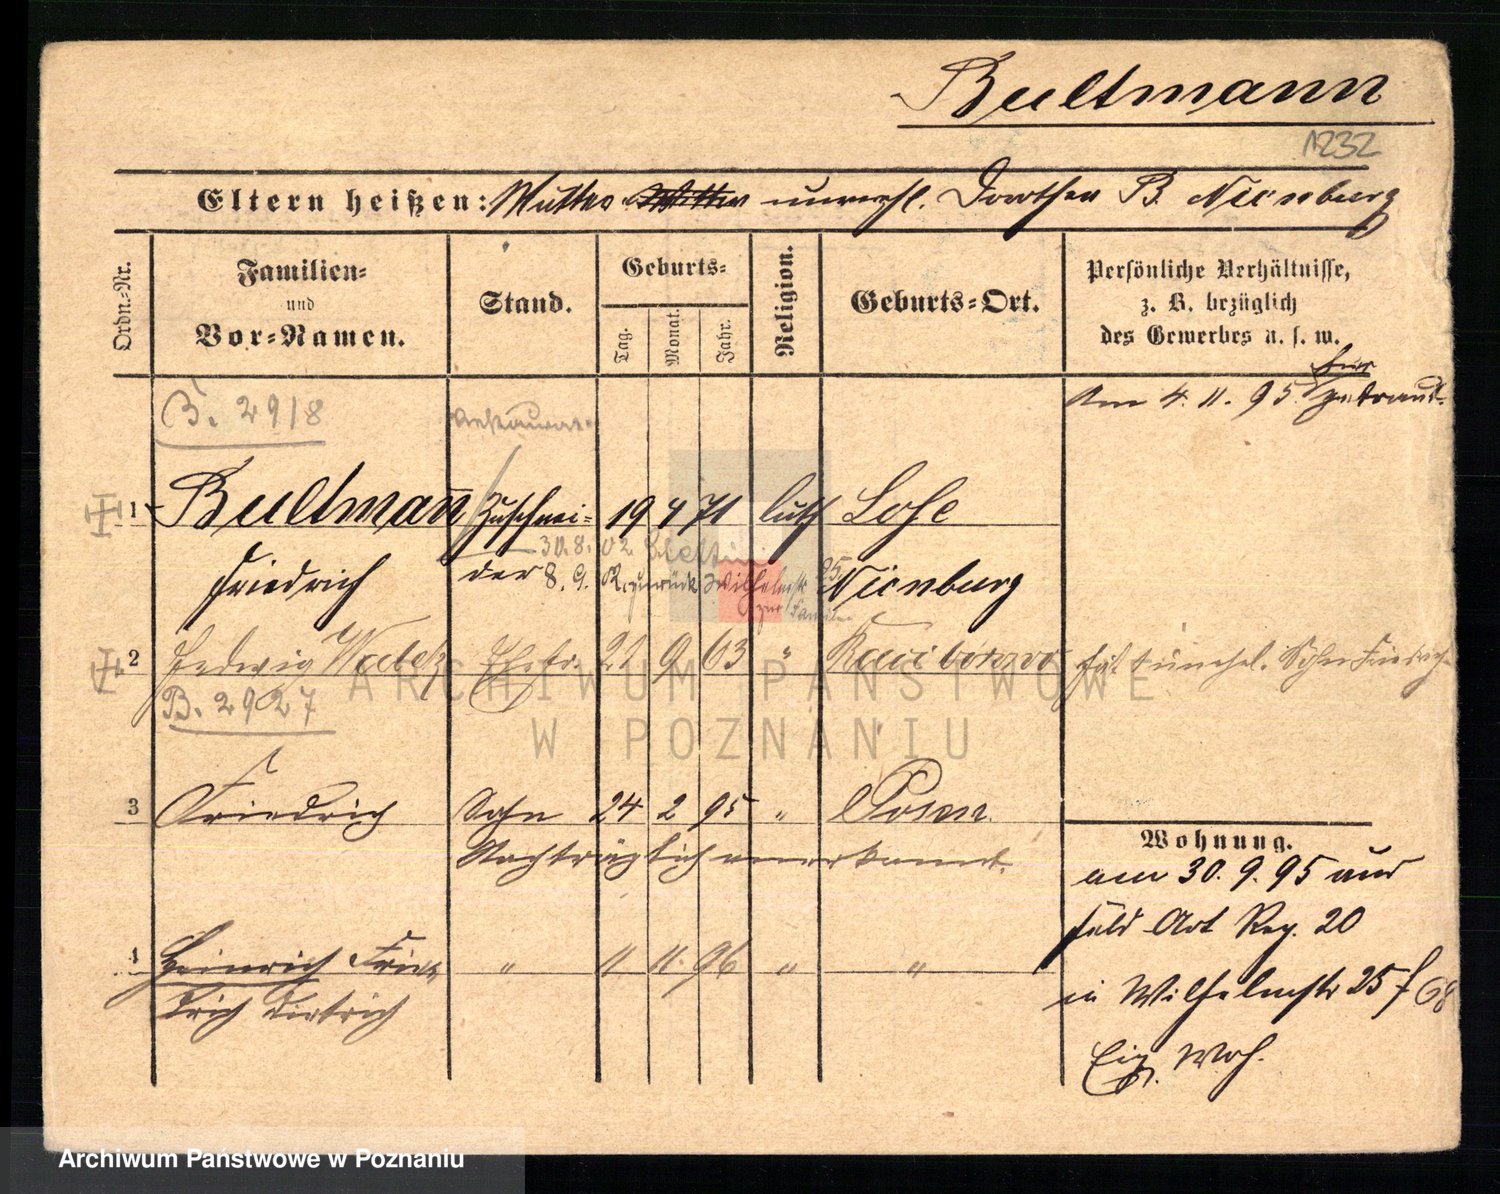 Bultmann
1232
Eltern heißen: Mutter unverehl. Dorothea B. Nienburg
Ordn.-Nr.
Familien-
und
Vor-Namen.
Stand.
Geburts-
Tag.
Monat.
Jahr.
Religion.
Geburts-Ort.
Persönliche Verhältnisse,
z. B. bezüglich
des Gewerbes u. s. w.
hier
Am 4. 11. 95. getraut.
B. 2918
1 Bultmann Zuschnei- 19 4 71 luth Lohe
30.8.02
Friedrich der 8.9. zurück Wilhelmstr 25 Nienburg
zur Familie
2 Hedwig Ehefr. 22 9 63 "
B. 2927
ARCHIWUM PAŃSTWOWE
W POZNANIU
3 Friedrich Sohn 24 2 95 " Posen.
Nachträglich anerkannt.
4 Heinrich Frie- " 11 11. 96 " "
drich Dietrich
Wohnung.
am 30. 9. 95 aus
Feld Art Reg. 20
in Wilhelmstr 25
68
Eig. Woh.
Archiwum Państwowe w Poznaniu